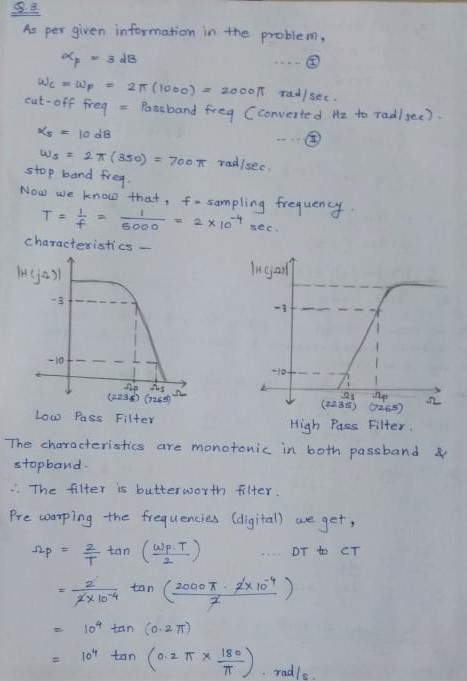 Q.3.
As per given information in the problem,
αp = 3 dB ---- Ⓘ
ωc = ωp = 2π(1000) = 2000π rad/sec.
cut-off freq = Passband freq (converted Hz to rad/sec).
αs = 10 dB ---- Ⓘ Ⓘ
ωs = 2π(350) = 700π rad/sec.
stop band freq.
Now we know that, f = sampling frequency.
T = 1/f = 1/5000 = 2 × 10⁻⁴ sec.
characteristics —
|H(jΩ)| |H(jΩ)|
-3 -3
-10 -10
Ωp Ωs Ω Ωs Ωp Ω
(2235) (7265) (2235) (7265)
Low Pass Filter High Pass Filter.
The characteristics are monotonic in both passband &
stopband.
∴ The filter is butterworth filter.
Pre warping the frequencies (digital) we get,
Ωp = 2/T tan (ωp.T/2) .... DT to CT
= 2/2×10⁻⁴ tan (2000π . 2×10⁻⁴/2)
= 10⁴ tan (0.2π)
= 10⁴ tan (0.2π × 180/π) . rad/s.